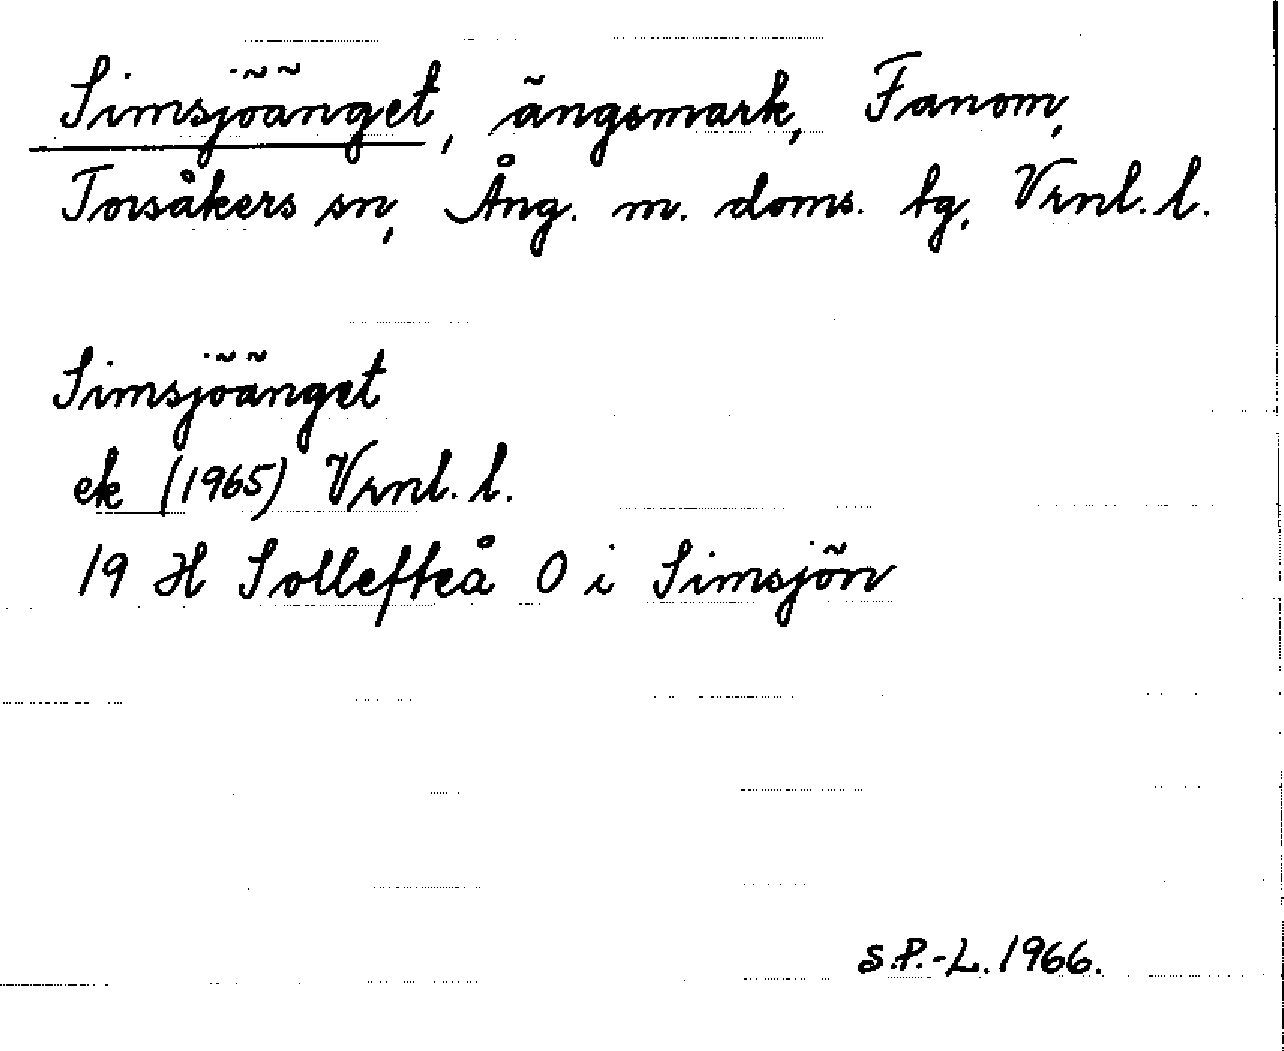 Simsjöänget, ängsmark, Fanom,
Torsåkers sn, Ång. m. doms. tg, Vrnl. l.
Simsjöänget
ek (1965) Vrnl. l.
19 H Sollefteå O i Simsjön
S.P.-L. 1966.